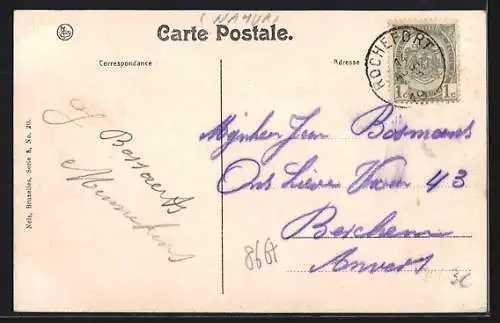 (NAMUR)
Carte Postale.
Correspondance
Adresse
ROCHEFORT
1c 1c
Nels, Bruxelles, Serie 8, No. 20.
J Bossaerts
Mynheer Jean Bosmans
Ons Lieve Vrouw 43
Berchem
Anvers
8667
3€